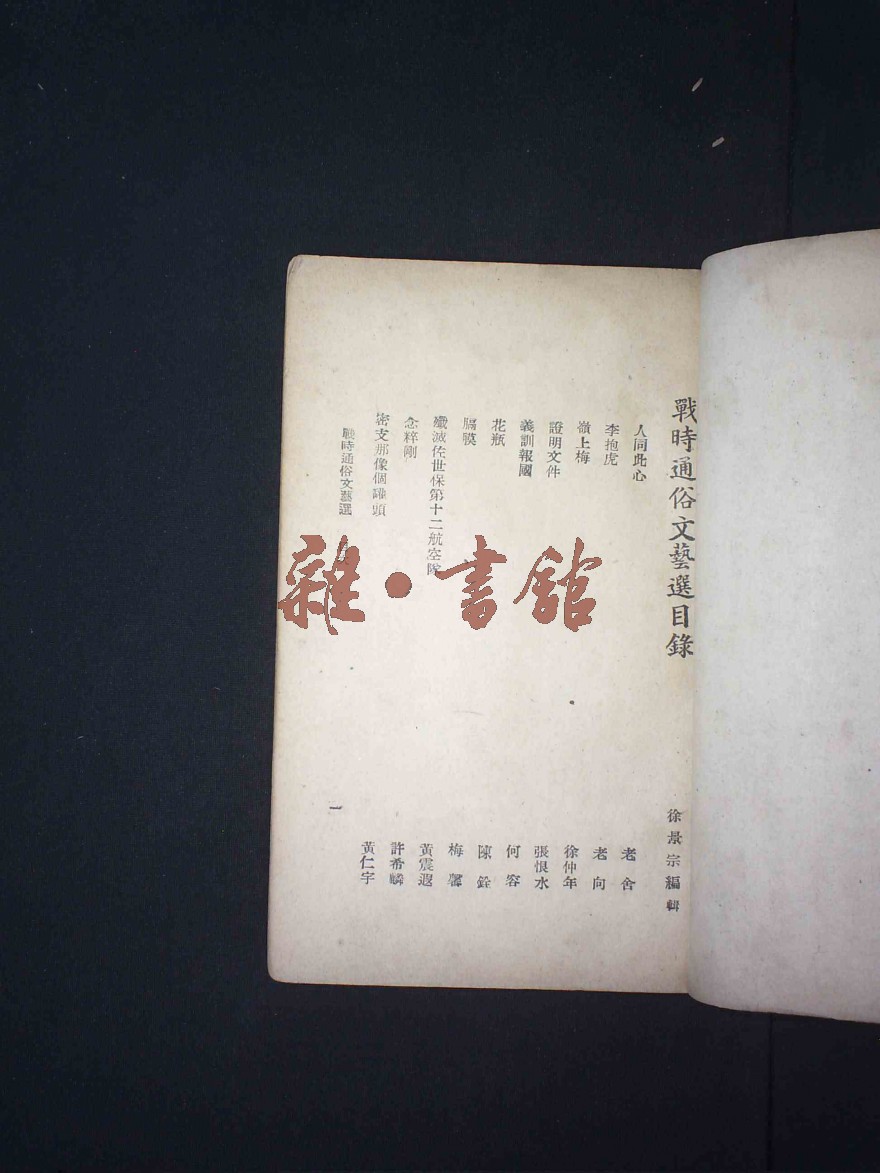 戰時通俗文藝選目錄
徐景宗編輯
人同此心 老舍
李抱虎 老向
嶺上梅 徐仲年
證明文件 張恨水
義訓報國 何容
花瓶 陳銓
隔膜 梅馨
殲滅佐世保第十二航空隊 黃震遐
念粹剛 許希麟
密支那像個罐頭 黃仁宇
戰時通俗文藝選
一
雜·書館